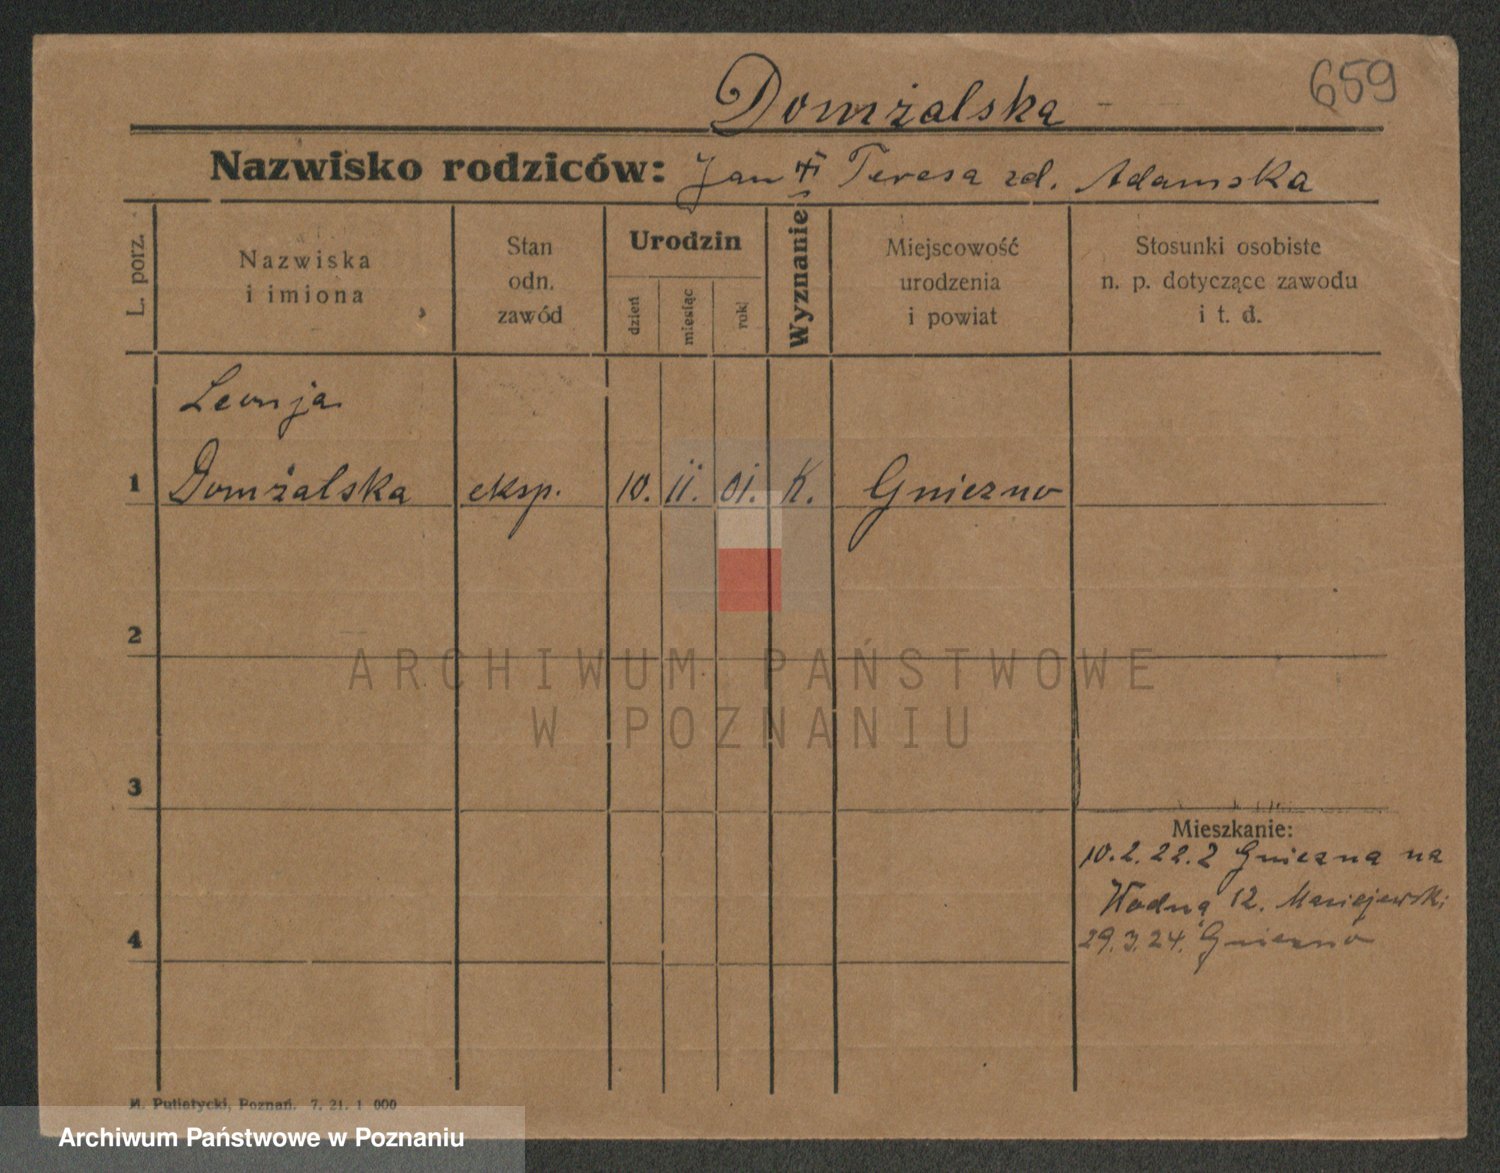 Domżalska
659
Nazwisko rodziców: Jan Teresa zd. Adamska
L. porz.
Nazwiska
i imiona
Stan
odn.
zawód
Urodzin
dzień
miesiąc
rok
Wyznanie
Miejscowość
urodzenia
i powiat
Stosunki osobiste
n. p. dotyczące zawodu
i t. d.
Leonja
1 Domżalska eksp. 10. II. 01. K. Gniezno
2
ARCHIWUM PAŃSTWOWE
W POZNANIU
3
Mieszkanie:
10.2.22. z Gniezna na
Wodną 12. Maciejewski
4
29.3.24. Gniezno
M. Putiatycki, Poznań. 7. 21. 1 000
Archiwum Państwowe w Poznaniu